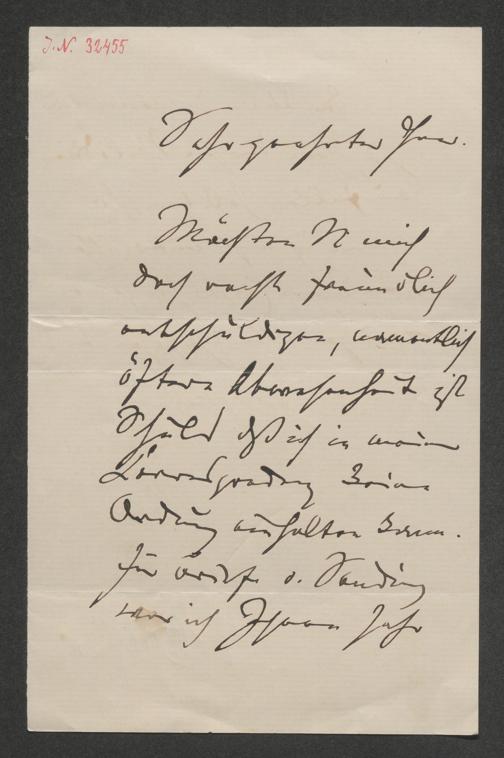 J. N. 32455
Sehr geehrter Herr.
Möchten Sie mich
doch recht freundlich
entschuldigen, namentlich
öftere Abwesenheit ist
Schuld daß ich in meine
Correspondenz keine
Ordnung einhalten kann.
Für Brief u. Sendung
war ich Ihnen sehr